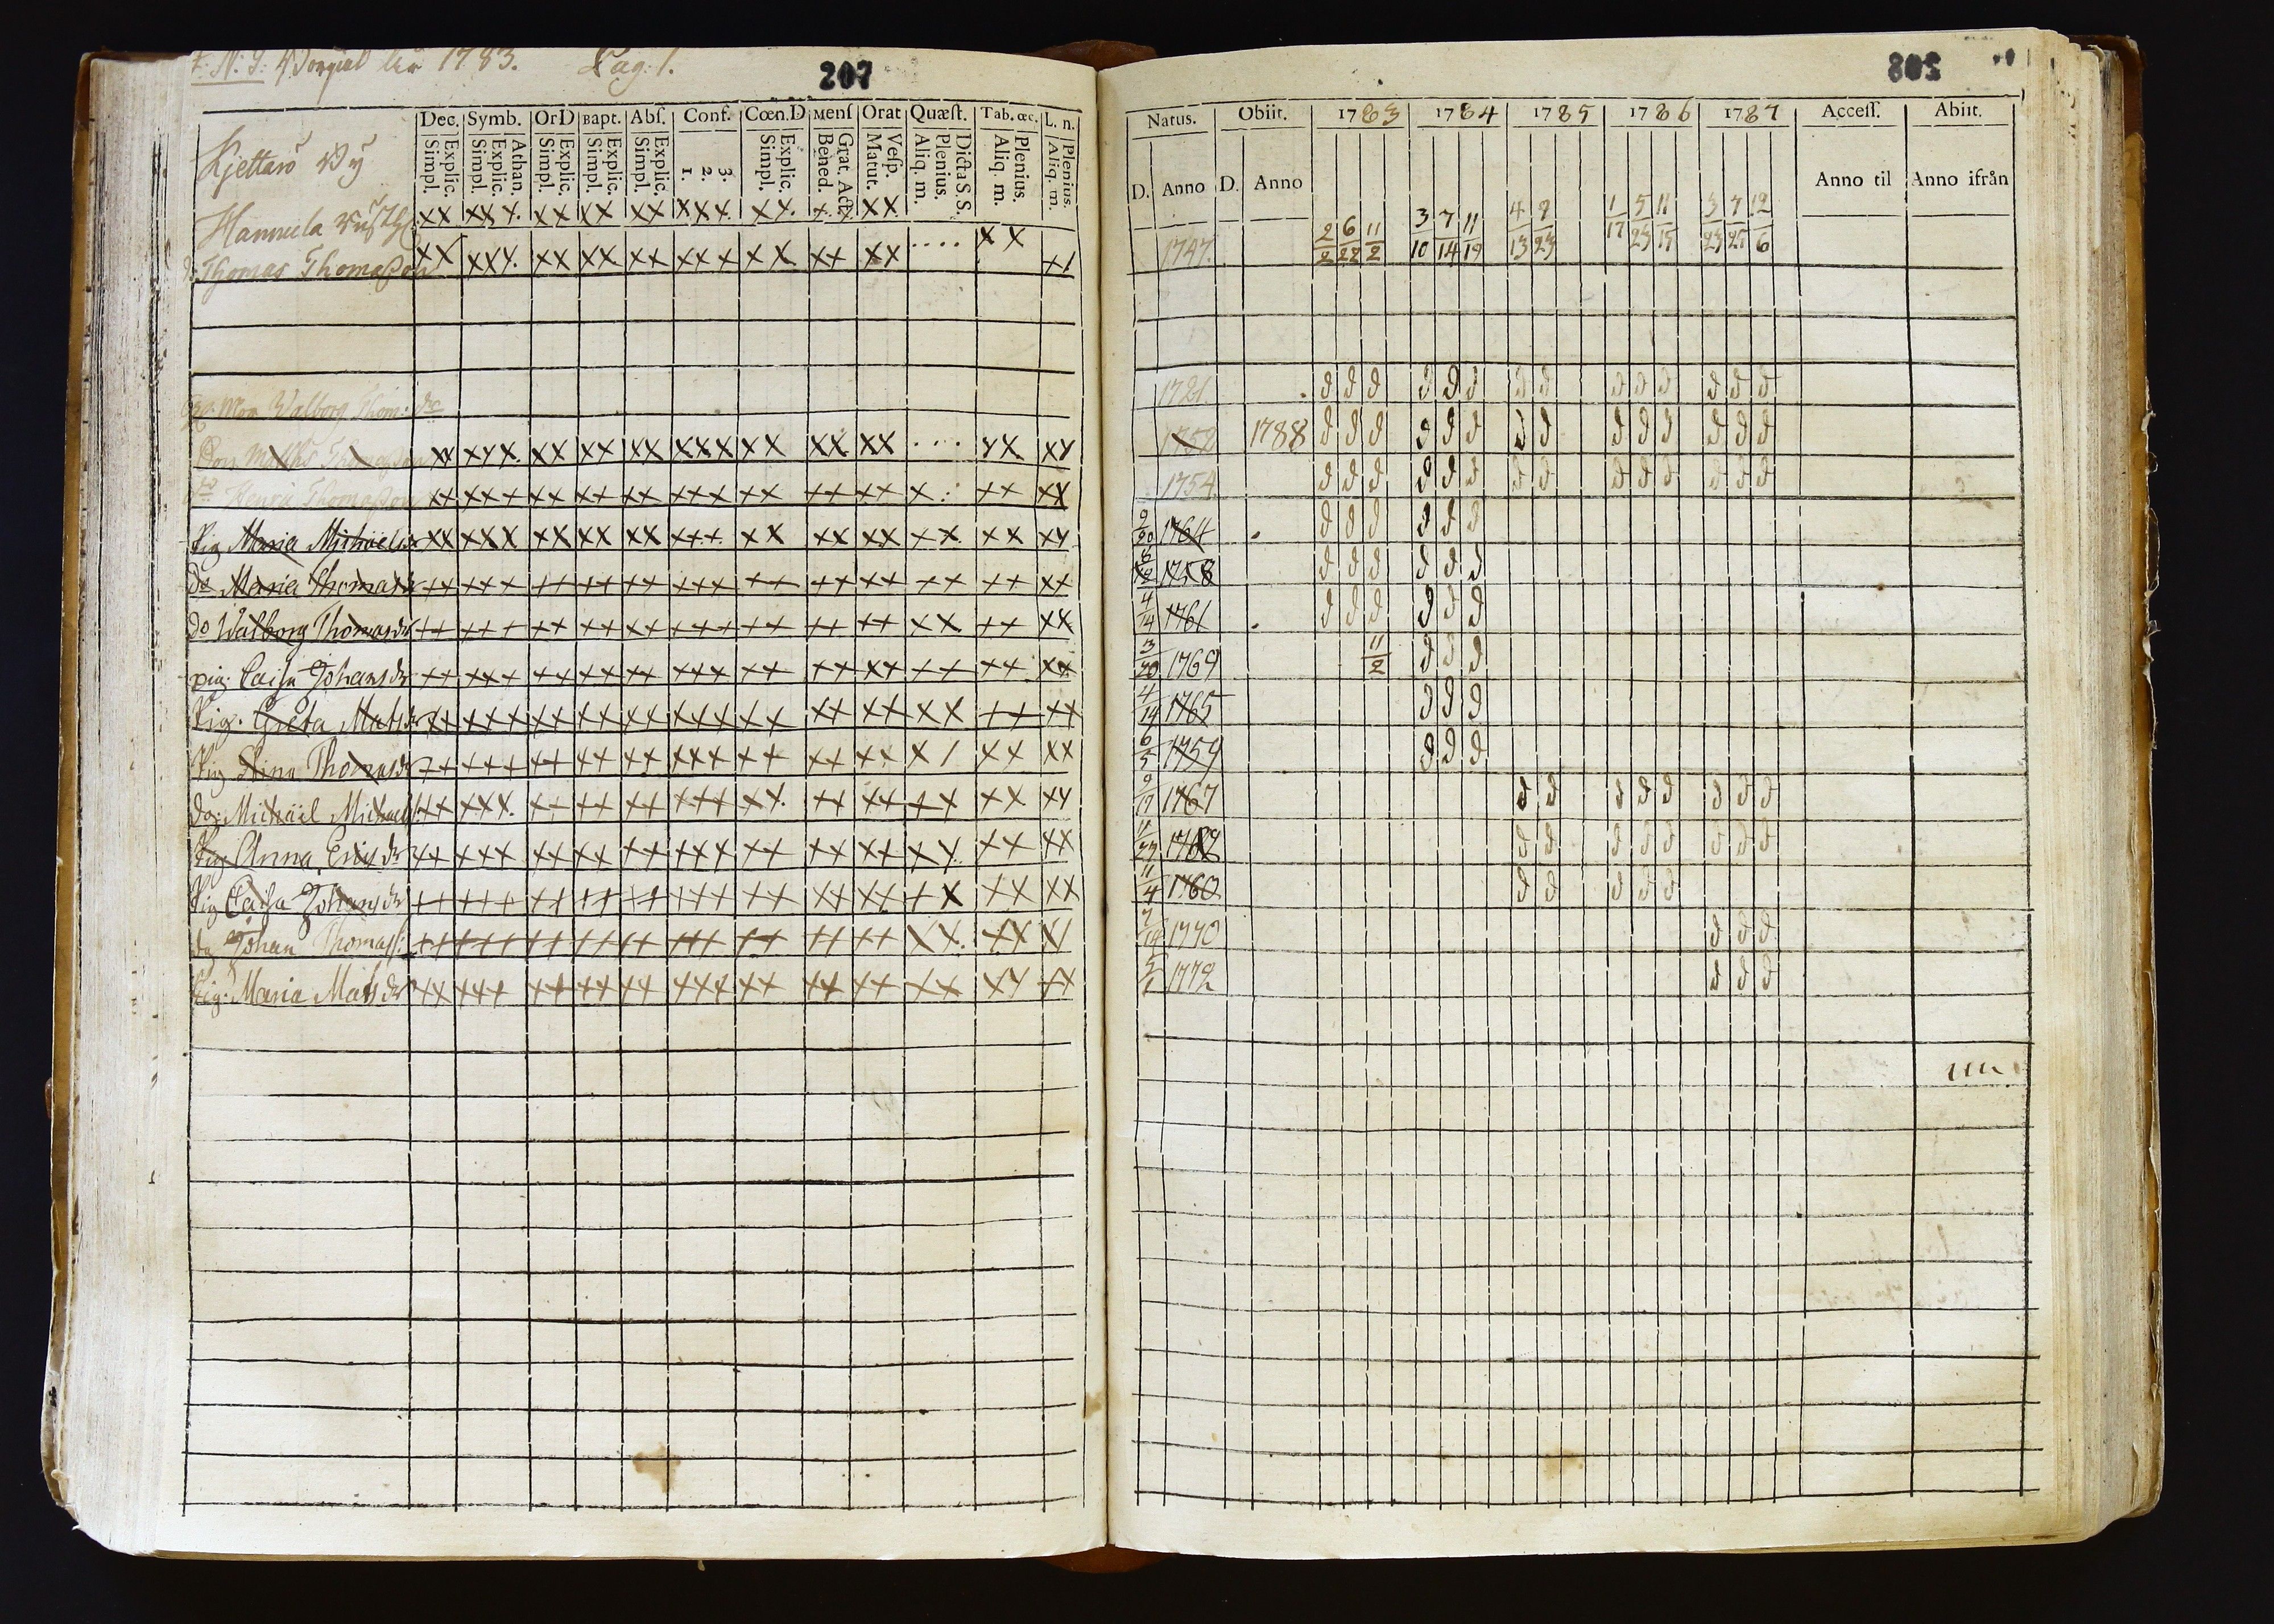 1783. Pag: 1.
207
Dec. Symb. OrD Bapt. Abſ. Conf. Cœn.D Menſ Orat Quæſt. Tab. œc. L. n.
Explic. Simpl. Athan. Explic. Simpl. Explic. Simpl. Explic. Simpl. Explic. Simpl. 3. 2. 1. Explic. Simpl. Grat. Act. Bened. Veſp. Matut. Dicta S.S. Plenius. Aliq. m. Plenius. Aliq. m. Plenius. Aliq. m.
Kjettarö By
Hannula
Thomas Thomaßon
Mor Walborg Thom: dr
Son Matths Thomaßon
do Henric Thomaßon
Pig Maria Michaelsdr
Do Maria Thomasdr
Do Walborg Thomasdr
pig: Caisa Johansdr
Pig. Greta Matsdr
Pig Stina Thomasdr
dg: Michäil Michaels
Pig Anna Ericsdr
Pig Caisa Johansdr
dg Johan Thomass:
Pig: Maria Matsdr
208
Natus. Obiit. 1783 1784 1785 1786 1787 Acceſſ. Abiit.
D. Anno D. Anno Anno til Anno ifrån
2/2 6/22 11/2 3/10 7/14 11/19 4/13 9/23 1/17 5/23 11/15 3/23 7/25 12/6
1747.
1721. d d d d d d d d d d d d d d
1752 1788 d d d d d d d d d d d d d d
1754. d d d d d d d d d d d d d d
9/30 1764 d d d d d d
1758 d d d d d d
4/14 1761 d d d d d d
3/20 1769 11/2 d d d
4/14 1765 d d d
6/5 1759 d d d
9/19 1767 d d d d d d d d
1762 d d d d d d d d
11/4 1760 d d d d d
1770 d d d
5/1 1772 d d d